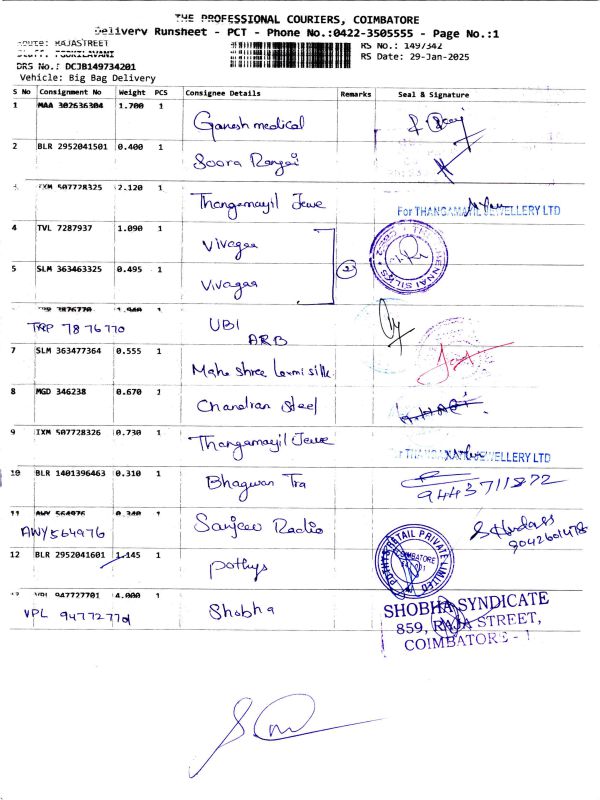 THE PROFESSIONAL COURIERS, COIMBATORE
Delivery Runsheet - PCT - Phone No.:0422-3505555 - Page No.:1
Route: RAJASTREET
RS No.: 1497342
RS Date: 29-Jan-2025
DRS No.: DCJB149734201
Vehicle: Big Bag Delivery
S No Consignment No Weight PCS Consignee Details Remarks Seal & Signature
1 MAA 302636304 1.700 1 Ganesh medical
2 BLR 2952041501 0.400 1 Soora Rangai
IXM 507728325 2.120 1 Thangamayil Jewe For THANGAMAYIL JEWELLERY LTD
4 TVL 7287937 1.090 1 Vivagaa
5 SLM 363463325 0.495 1 Vivagaa 2
THE CHENNAI SILKS
TRP 7876770 1.940 1 UBI
TRP 7876770 ARB
7 SLM 363477364 0.555 1 Maha shree laxmi silk
8 MGD 346238 0.670 1 Chandran Steel
9 IXM 507728326 0.730 1 Thangamayil Jewe For THANGAMAYIL JEWELLERY LTD
10 BLR 1401396463 0.310 1 Bhagwan Tra 9443711872
11 AWY 564976 0.340 1 Sanjeev Radio
AWY564976
12 BLR 2952041601 1.145 1 pothys
POTHYS RETAIL PRIVATE LIMITED COIMBATORE
13 VPL 947727701 4.000 1 Shobha
VPL
SHOBHA SYNDICATE
859, RAJA STREET,
COIMBATORE - 1